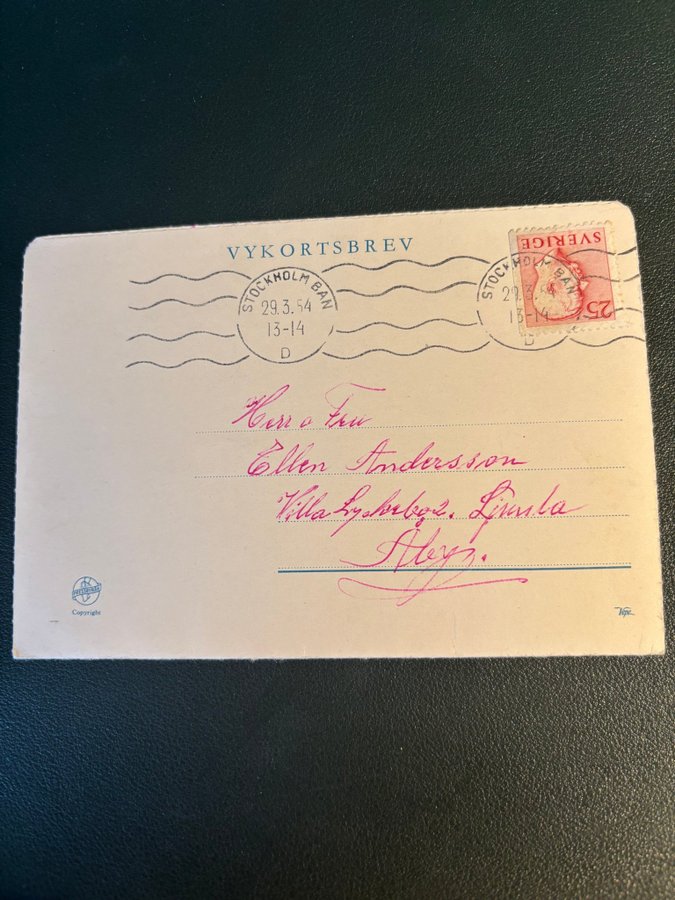 VYKORTSBREV
SVERIGE
25
STOCKHOLM BAN
29.3.54
13-14
D
STOCKHOLM BAN
29.3.54
13-14
D
Herr o Fru
Ellen Andersson
Villa
Åby
Copyright